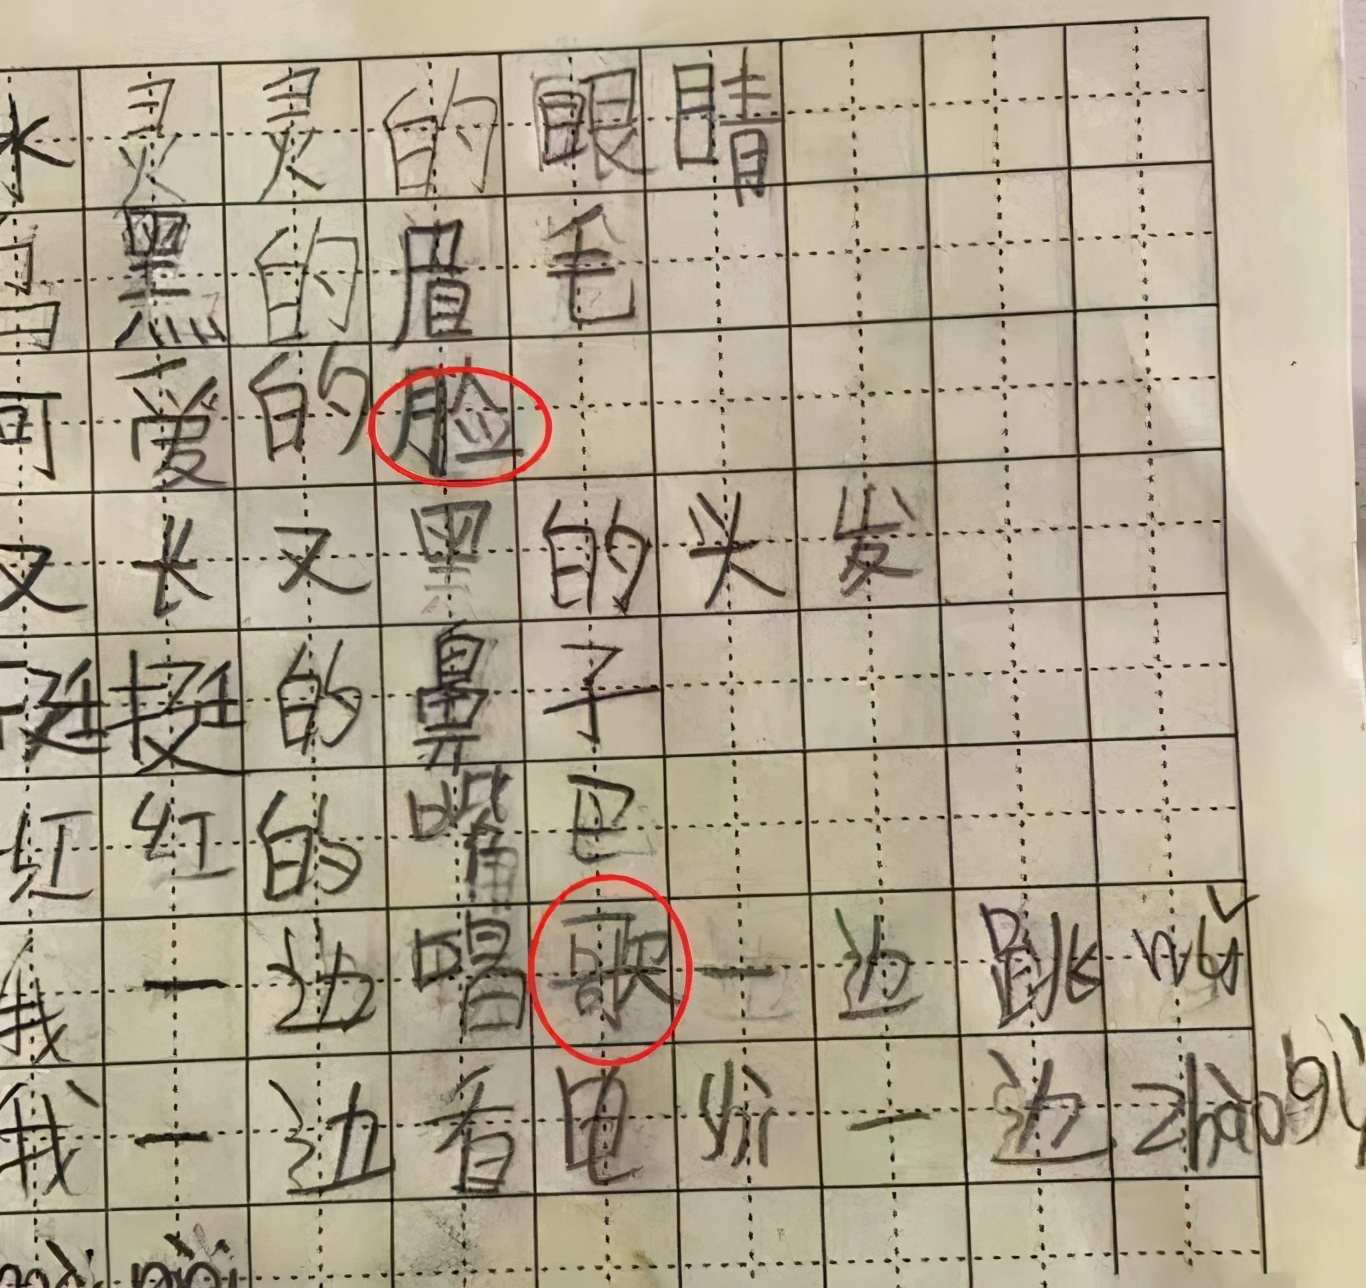 水灵灵的眼睛
黑的眉毛
可爱的脸
又长又黑的头发
挺挺的鼻子
红红的嘴巴
我一边唱歌一边跳wǔ
我一边看电 一边zhàogù